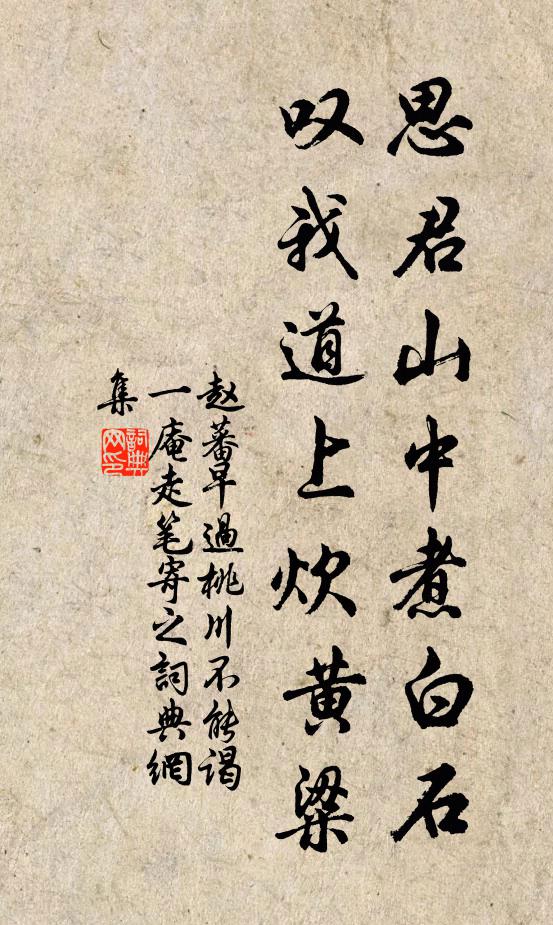 思君山中煮白石
叹我道上炊黄粱
赵蕃早過桃川不能谒
一庵走笔寄之詞典網
集
詞典
网印